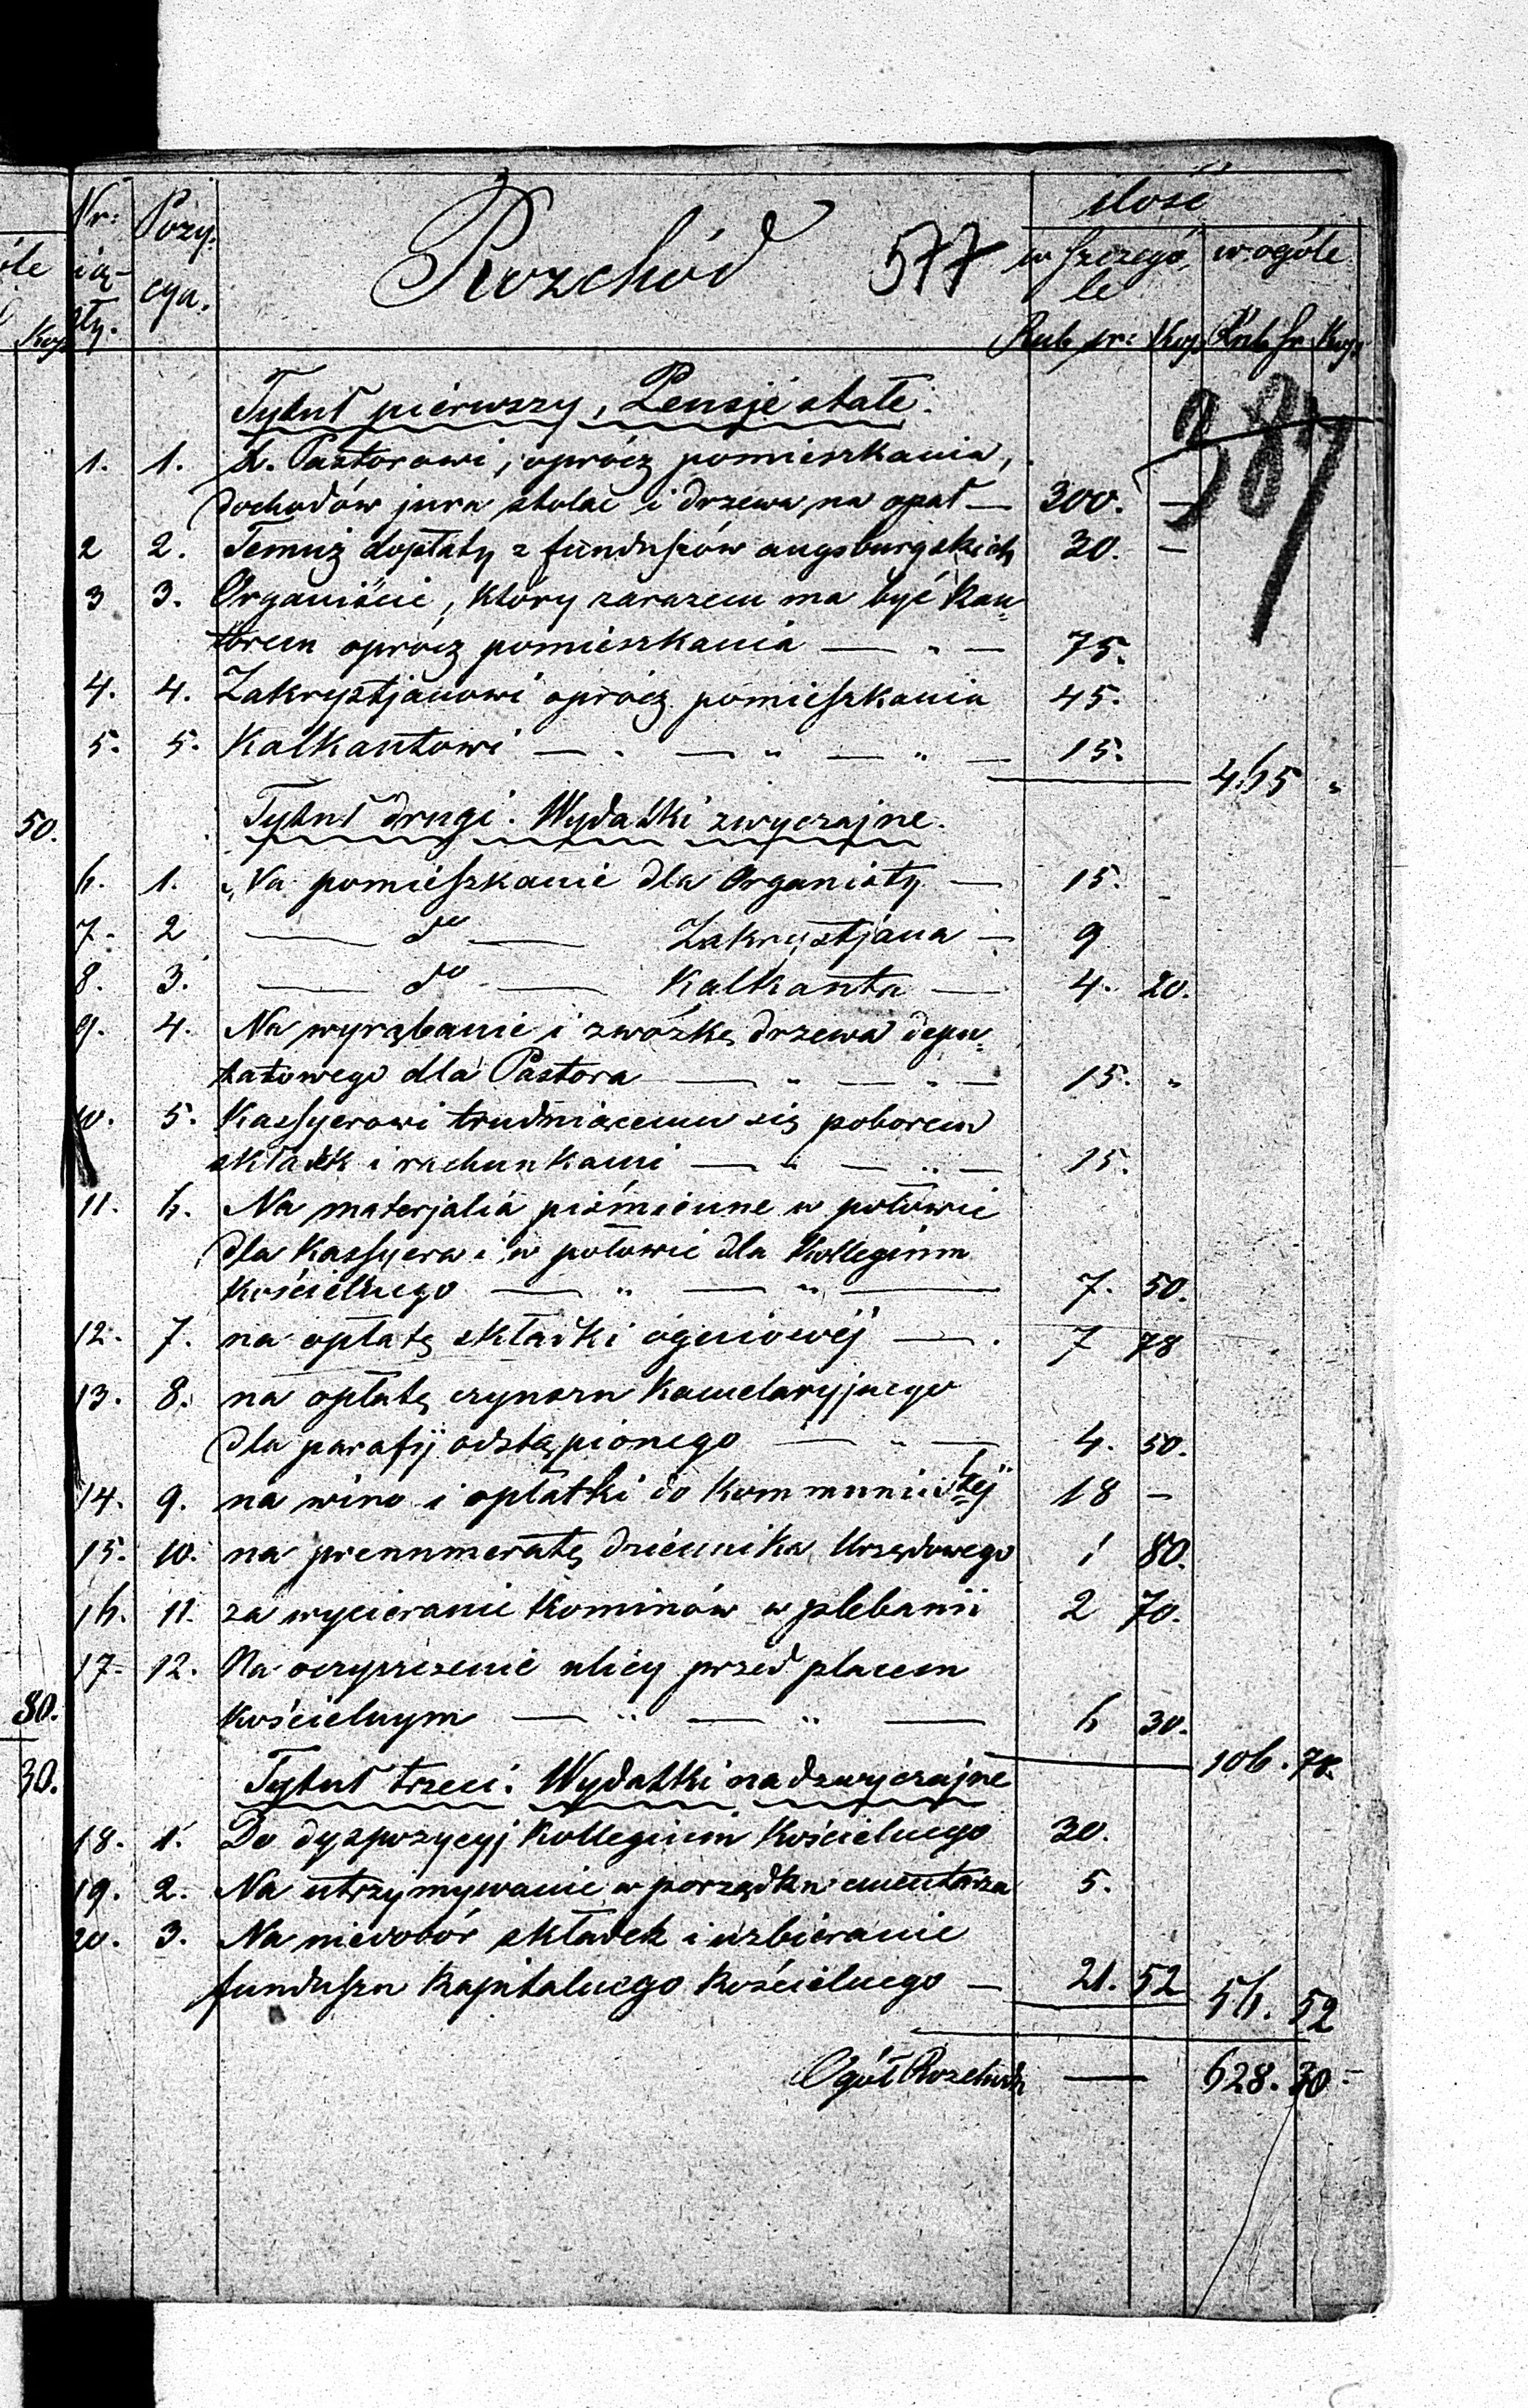 ilość
Nr: Pozy- Rozchód 577 w szczegó- w ogóle
óle cią- cya. le
Kop. gły. Rub sr: Kop Rub sr Kop
387
Tytuł pierwszy, Pensje stałe.
1. 1. X. Pastorowi, oprócz pomieszkania,
dochodów jura stolae i drzewa na opał — 300. —
2 2. Temuż dopłaty z funduszów augsburgskich 30. —
3 3. Organiście, który zarazem ma być Kan=
torem oprócz pomieszkania — " — 75.
4. 4. Zakrystjanowi oprócz pomieszkania 45.
5. 5. Kalkantowi — " — " — " — 15.
465 "
Tytuł drugi. Wydatki zwyczajne.
50.
6. 1. Na pomieszkanie dla Organisty — 15. -
7. 2 — do — Zakrystjana — 9
8. 3. — do — Kalkanta — 4. 20.
9. 4. Na wyrąbanie i zwózkę drzewa depu=
tatowego dla Pastora — " — " — 15. "
10. 5. Kassyerowi trudniącemu się poborem
składek i rachunkami — " — " — 15.
11. 6. Na materjalia piśmienne w połowie
dla Kassyera i w połowie dla Kollegium
Kościelnego — " — " — 7. 50.
12. 7. na opłatę składki ogniowéj — . 7 78
13. 8. na opłatę czynszu Kameralnyjnego
dla parafij odstąpionego — " — 4. 50.
14. 9. na wino i opłatki do Kommunii Stéj 18 —
15. 10. na prenumeratę dziennika Urzędowego 1 80.
16. 11. za wycieranie Kominów w plebanii 2 70.
17. 12. Na oczyszczenie ulicy przed placem
80. Kościelnym — " — " — 6 30.
106. 78.
30. Tytuł trzeci. Wydatki nadzwyczajne
18. 1. Do dyspozycyj Kollegium Kościelnego 30.
19. 2. Na utrzymywanie w porządku cmentarza 5.
20. 3. Na niedobór składek i uzbieranie
funduszu Kapitalnego Kościelnego — 21. 52
56. 52
Ogół Rozchodu — 628. 30 -